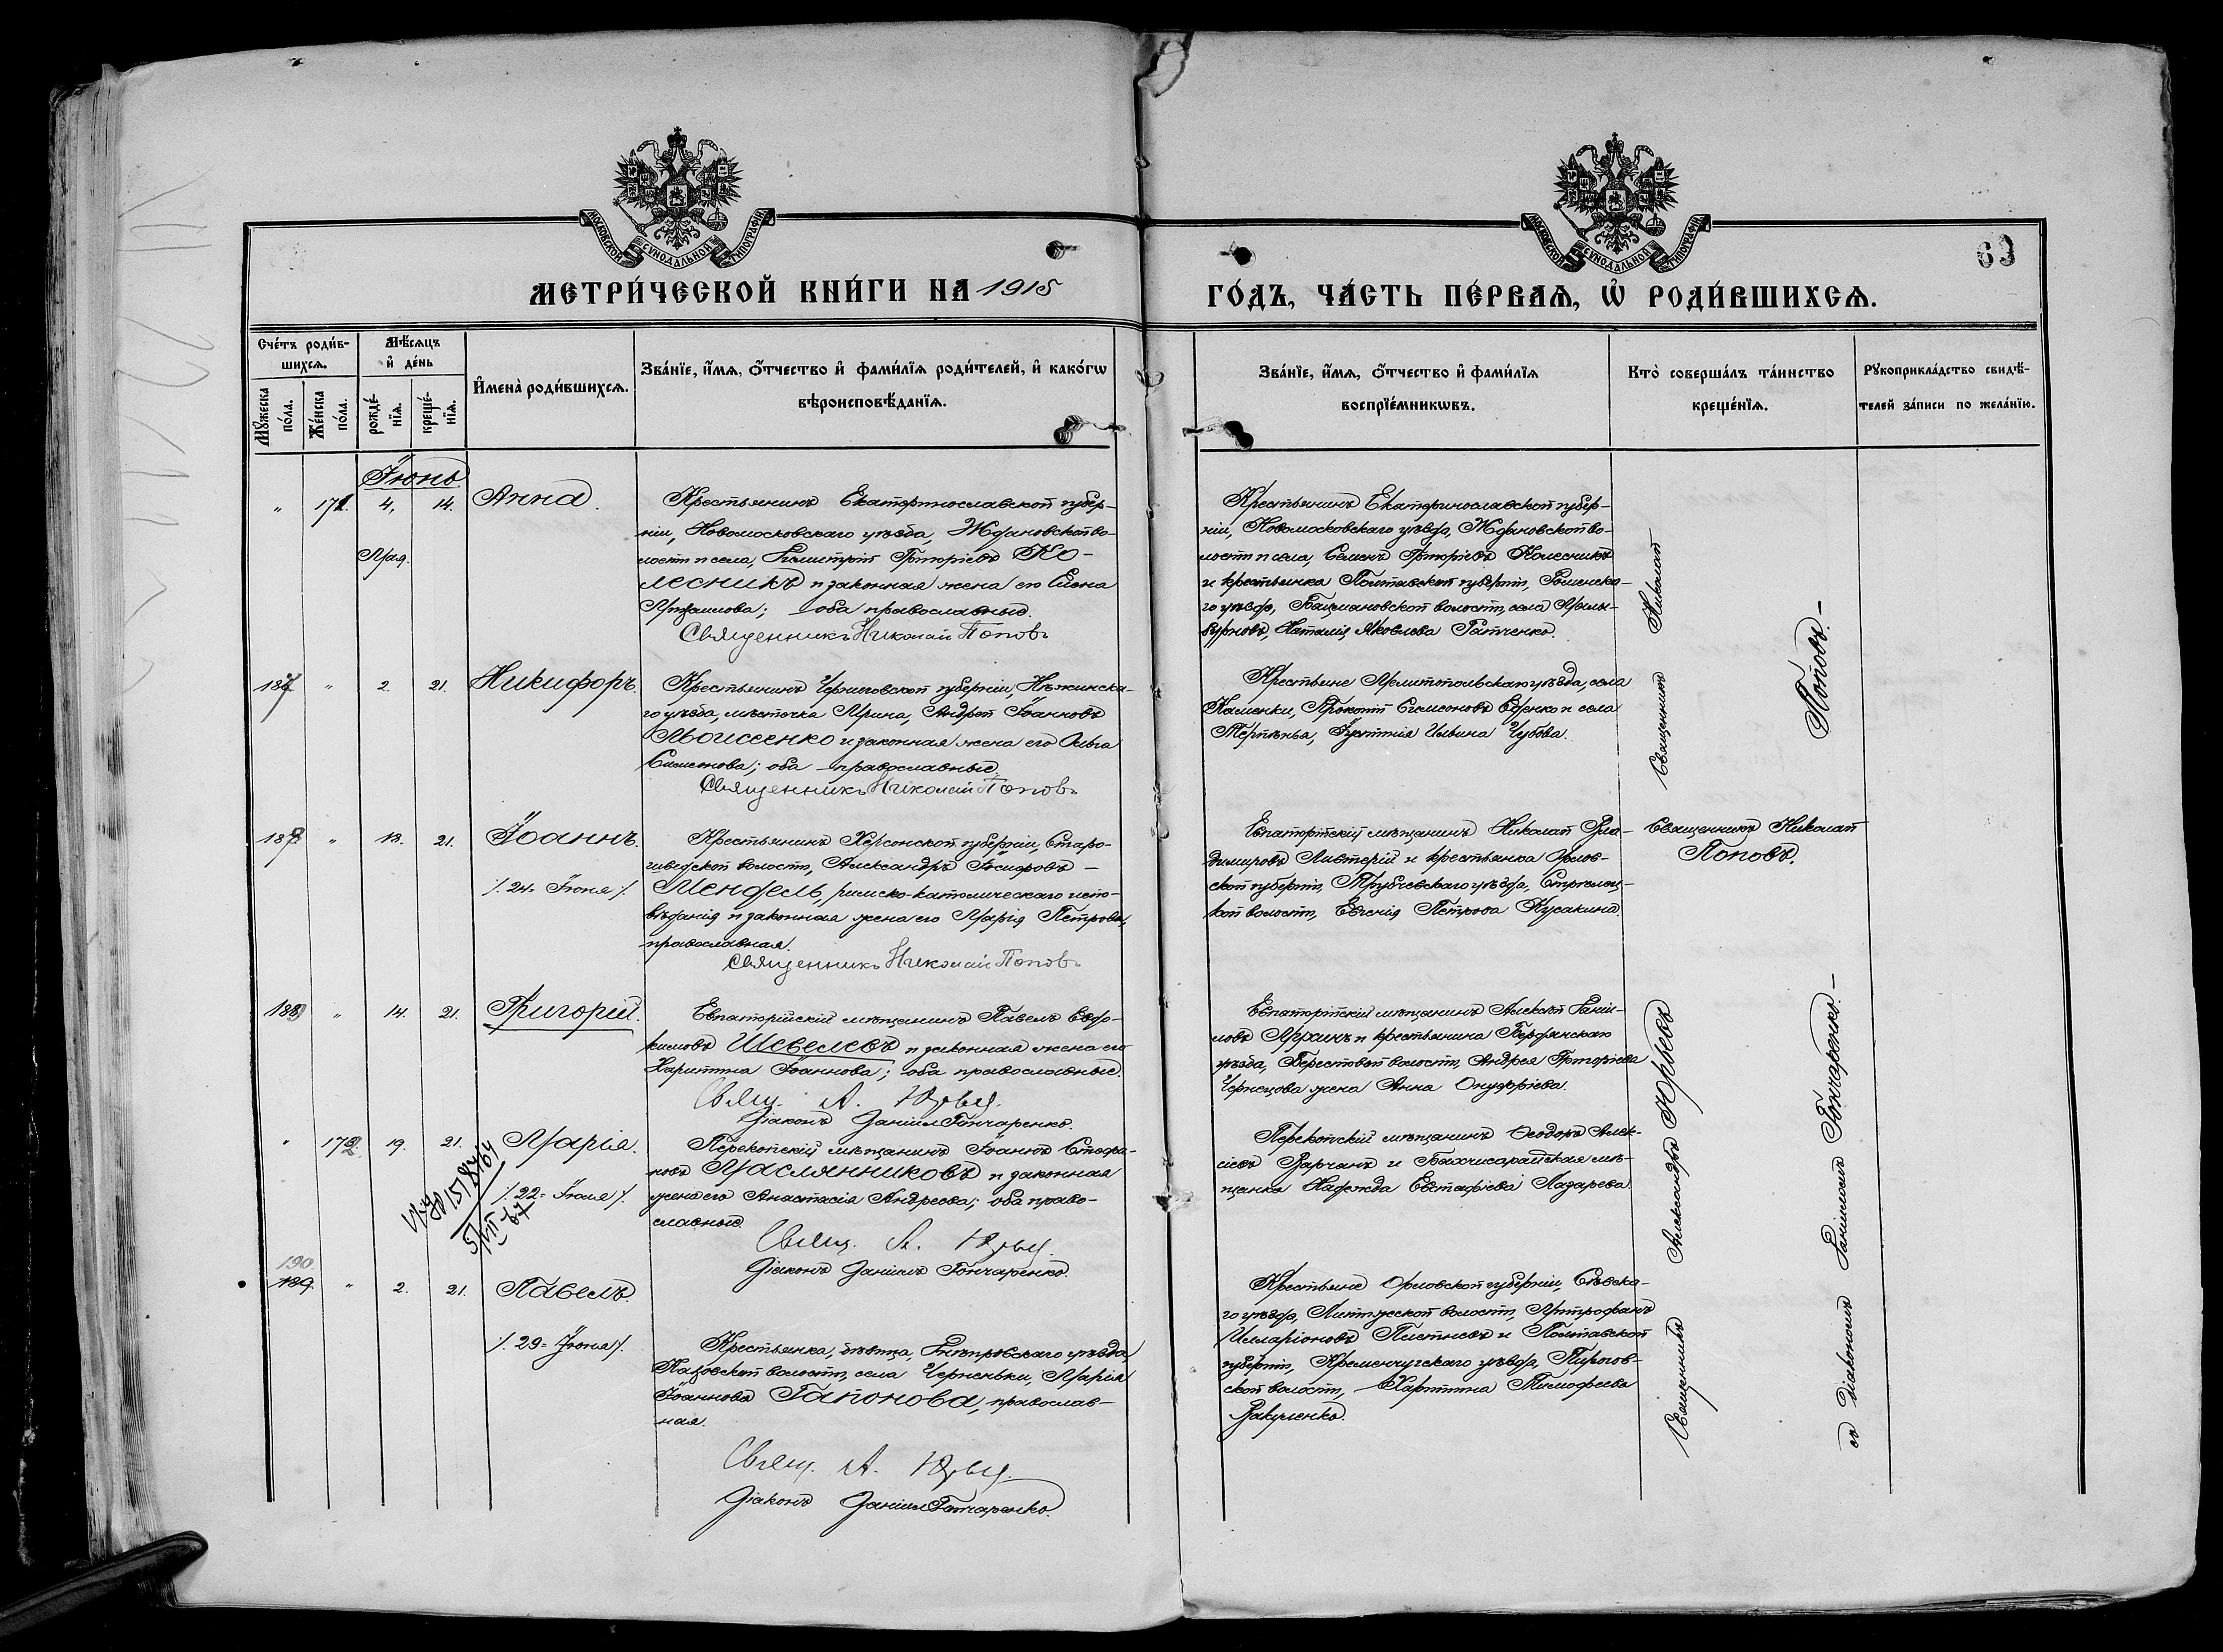 МОСКОВСКОЙ СѴНОДАЛЬНОЙ ТИПОГРАФІИ
МОСКОВСКОЙ СѴНОДАЛЬНОЙ ТИПОГРАФІИ
63
МЕТРИ́ЧЕСКОЙ КНИ́ГИ НА 1915
ГО́ДЪ, ЧА́СТЬ ПЕ́РВАѦ, Ѽ РОДИ́ВШИХСѦ.
Сче́тъ роди́в-
шихсѧ.
Мѣ́сѧцъ
и҆ де́нь
Мꙋ́жеска по́ла.
Же́нска по́ла.
рожде́-
нїѧ.
креще́-
нїѧ.
И҆мена̀ роди́вшихсѧ.
Зва́нїе, и҆́мѧ, ѻ҆́тчество и҆ фами́лїѧ роди́телей, и҆ како́гѡ
вѣроисповѣ́данїѧ.
Зва́нїе, и҆́мѧ, ѻ҆́тчество и҆ фами́лїѧ
воспрїе́мникѡвъ.
Кто̀ соверша́лъ та́инство
креще́нїѧ.
Рꙋкоприкла́дство свидѣ́-
телей за́писи по жела́нїю.
Іюнь
" 171. 4. 14. Анна.
Мая.
Крестьянинъ Екатеринославской губер-
ніи, Новомосковскаго уѣзда, Ждановской во-
лости и села, Димитрій Григоріевъ Ко-
лесникъ и законная жена его Елена
оба православные.
Священникъ Николай Поповъ
Крестьянинъ Екатеринославской губер-
ніи, Новомосковскаго уѣзда, Ждановской во-
лости и села, Семенъ Григоріевъ Колесникъ
и крестьянка Полтавской губерніи, Роменска-
го уѣзда, волости, села
Наталія Яковлева
Священникъ Николай
Поповъ.
187 " 2. 21. Никифоръ.
Крестьянинъ Черниговской губерніи, Нѣжинска-
го уѣзда, мѣстечка Мрина, Андрей Іоанновъ
Моисеенко и законная жена его Ольга
Симеонова; оба православные.
Священникъ Николай Поповъ
Крестьяне Мелитопольскаго уѣзда, села
Каменки, Прокопій Симеоновъ и села
Терпѣнья, Ильина Чубова.
188 " 13. 21. Іоаннъ.
/. 24. Іюня /.
Крестьянинъ Херсонской губерніи, Старо-
шведской волости, Александръ Іосифовъ
Мендель, римско-католическаго испо-
вѣданія и законная жена его Марія Петрова,
православная.
Священникъ Николай Поповъ
Евпаторійскій мѣщанинъ Николай Вла-
димировъ и крестьянка Орлов-
ской губерніи, Трубчевскаго уѣзда, Стрѣлец-
кой волости, Евгенія Петрова Кусакина.
Священникъ Николай
Поповъ.
189 " 14. 21. Григорій.
Евпаторійскій мѣщанинъ Павелъ Евдо-
кимовъ Шевелевъ и законная жена его
Харитина Іоаннова; оба православные.
Свящ. А. Юрьев.
Діаконъ Даніилъ Гончаренко.
Евпаторійскій мѣщанинъ Алексѣй Даніи-
ловъ и крестьянина Бердянскаго
уѣзда, Берестовой волости, Андрея Григоріева
Чернецова жена Анна Онуфріева.
" 172 19. 21. Марія.
/. 22. Іюля /.
Перекопскій мѣщанинъ Іоаннъ Стефа-
новъ Маслянниковъ и законная
жена его Анастасія Андреева; оба право-
славные.
Свящ. А. Юрьев.
Діаконъ Даніилъ Гончаренко.
Перекопскій мѣщанинъ Ѳеодоръ Алек-
сіевъ и Бахчисарайская мѣ-
щанка Надежда Евстафіева Лазарева.
190.
189. " 2. 21. Павелъ.
/. 29. Іюня /.
Крестьянка, дѣвица, Днѣпровскаго уѣзда,
волости, села Черненьки, Марія
Іоаннова Гапонова, православ-
ная.
Свящ. А. Юрьев.
Діаконъ Даніилъ Гончаренко.
Крестьяне Орловской губерніи, Сѣвска-
го уѣзда, волости, Митрофанъ
Илларіоновъ и Полтавской
губерніи, Кременчугскаго уѣзда, Пирогов-
ской волости, Харитина Тимофеева
Вакуленко.
Священникъ Александръ Юрьевъ
съ діакономъ Даніиломъ Гончаренко.